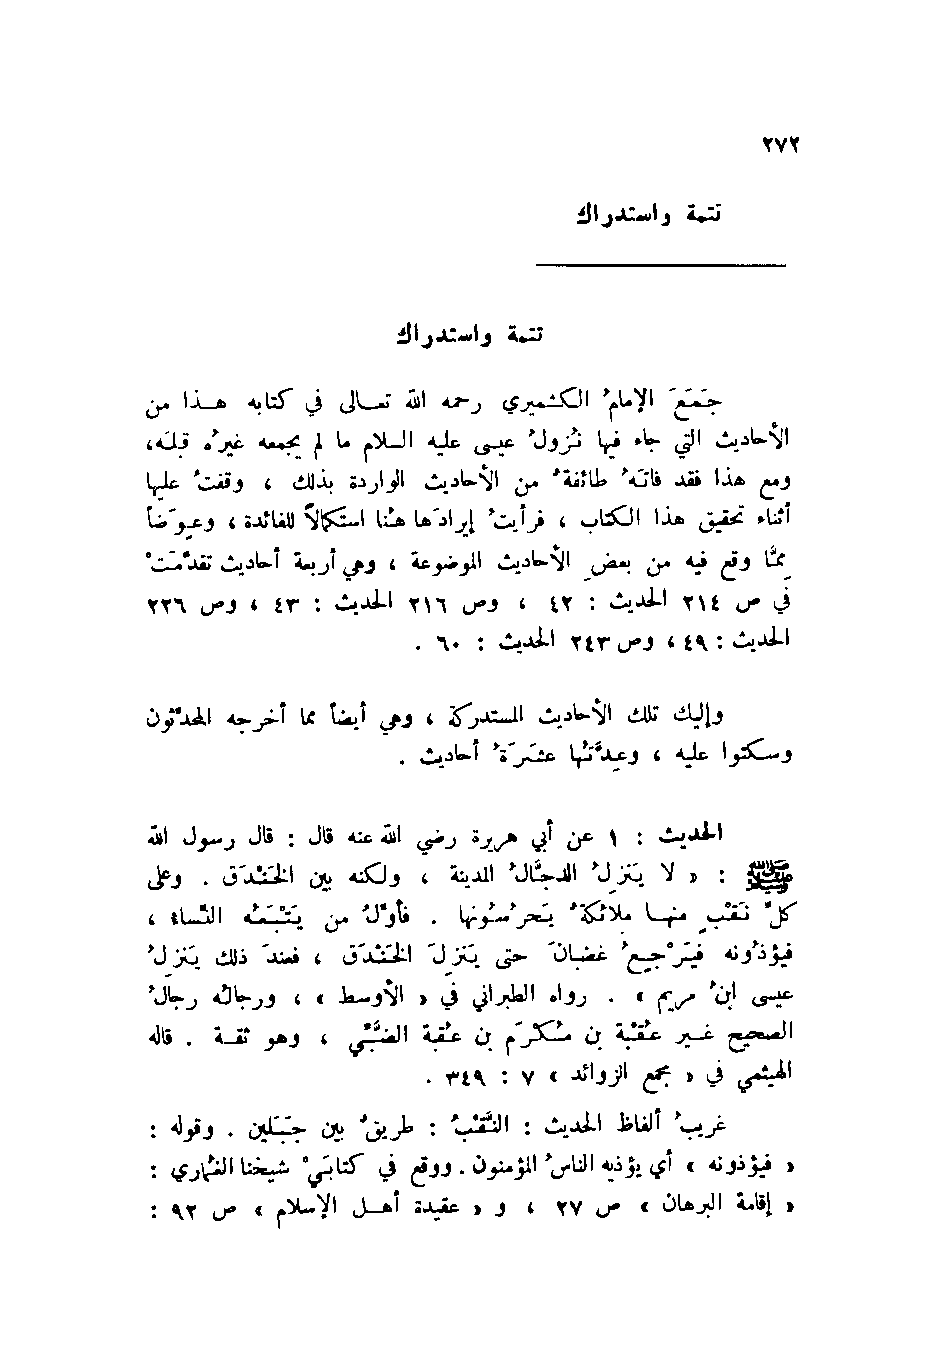 ٢٧٢
تتمة واستدراك
تتمة واستدراك
جَمَعَ الإمامُ الكشميري رحمه الله تعالى في كتابه هذا من
الأحاديث التي جاء فيها نُزولُ عيسى عليه السلام ما لم يجمعه غيرُه قبلَه،
ومع هذا فقد فاتَه طائفةٌ من الأحاديث الواردة بذلك ، وقفتُ عليها
أثناء تحقيق هذا الكتاب ، فرأيتُ إيرادَها هنا استكمالاً للفائدة ، وعِوَضاً
ممَّا وقع فيه من بعضِ الأحاديث الموضوعة ، وهي أربعة أحاديث تقدَّمَتْ
في ص ٢١٤ الحديث : ٤٢ ، وص ٢١٦ الحديث : ٤٣ ، وص ٢٢٦
الحديث : ٤٩ ، وص ٢٤٣ الحديث : ٦٠ .
وإليك تلك الأحاديث المستدركة ، وهي أيضاً مما أخرجه المحدّثون
وسكتوا عليه ، وعِدَّتُها عَشَرَةُ أحاديث .
الحديث : ١ عن أبي هريرة رضي الله عنه قال : قال رسول الله
ﷺ : « لا يَنزِلُ الدجَّالُ المدينة ، ولكنه بين الخَنْدَق . وعلى
كلّ نَقْبٍ منها ملائكةٌ يَحرُسُونها . فأوَّلُ من يَتْبَعُه النساء ،
فيؤذُونه فيَرْجِعُ غضبانَ حتى يَنزِلَ الخَنْدَق ، فعندَ ذلك يَنزِلُ
عيسى ابنُ مريم » . رواه الطبراني في « الأوسط » ، ورجالُه رجالُ
الصحيح غير عُقْبة بن مُكْرَم بن عُقبة الضَّبِّي ، وهو ثقة . قاله
الهيثمي في « مجمع الزوائد » ٧ : ٣٤٩ .
غريبُ ألفاظ الحديث : النَّقْبُ : طريقٌ بين جَبَلين . وقوله :
« فيؤذونه » أي يؤذيه الناسُ المؤمنون . ووقع في كتابَيْ شيخنا الغُماري :
« إقامة البرهان » ص ٢٧ ، و « عقيدة أهل الإسلام » ص ٩٢ :